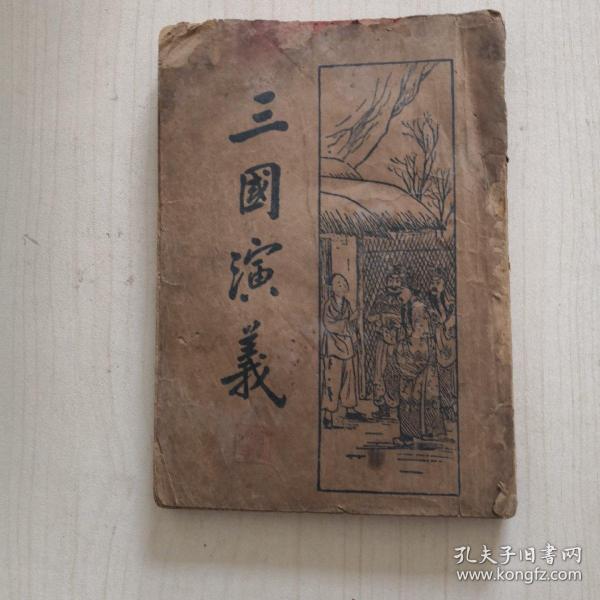 三國演義
孔夫子旧書网
www.kongfz.com